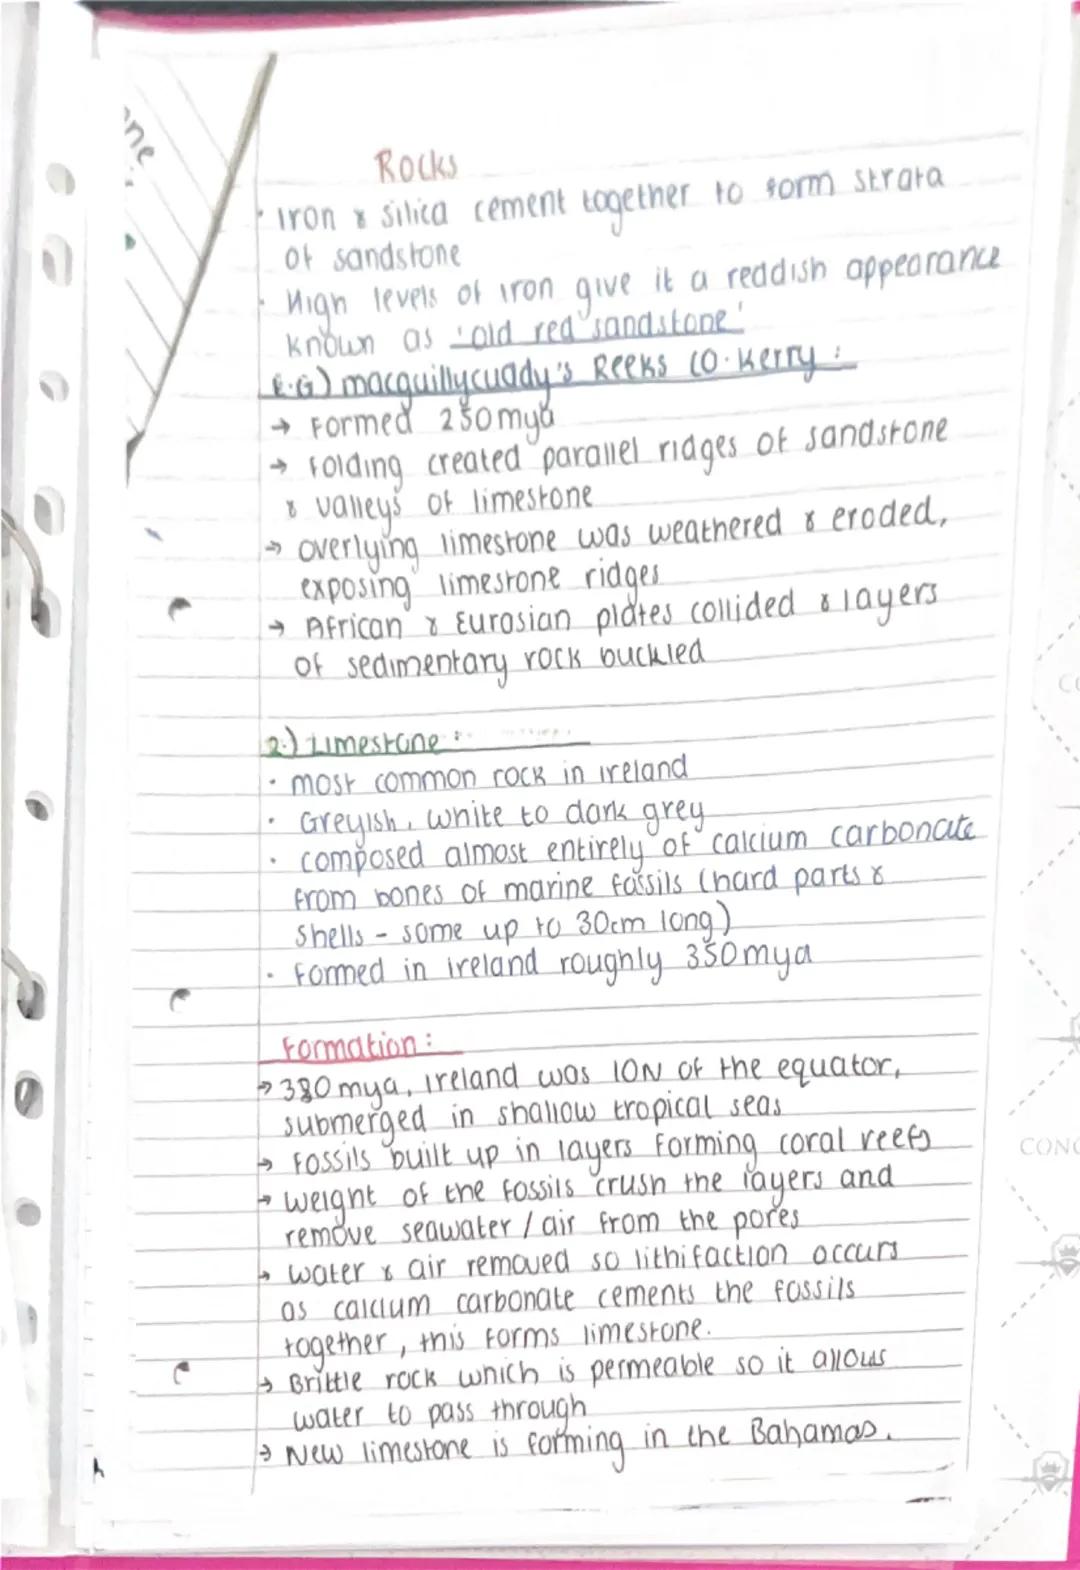 one.
Rocks
· Iron & silica cement together to form strata
of sandstone
· High levels of iron give it a reddish appearance
known as 'old red sandstone'
E.G) macguillycuady's Reeks CO. Kerry :
→ Formed 250mya
→ Folding created parallel ridges of sandstone
& valleys of limestone
→ overlying limestone was weathered & eroded,
exposing limestone ridges
→ African & Eurasian plates collided & layers
of sedimentary rock buckled
2.) Limestone :
· most common rock in ireland
· Greyish, white to dark grey
· composed almost entirely of calcium carbonate
from bones of marine fossils (hard parts &
shells - some up to 30cm long)
· Formed in ireland roughly 350mya
Formation :
→ 380mya, ireland was 10N of the equator,
submerged in shallow tropical seas
→ Fossils built up in layers forming coral reefs
→ weight of the fossils crush the layers and
remove seawater / air from the pores
→ water & air removed so lithifaction occurs
as calcium carbonate cements the fossils
together, this forms limestone.
→ Brittle rock which is permeable so it allows
water to pass through
→ New limestone is forming in the Bahamas.